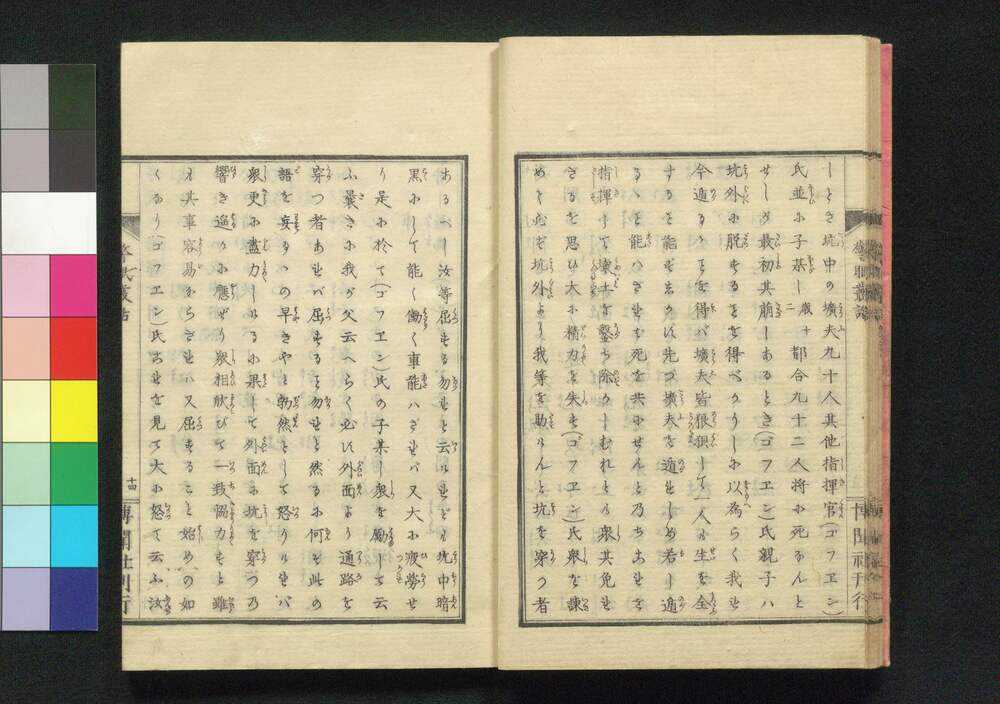 しとき坑中の壙夫九十人其他指揮官(ゴフヱン)
氏並に子某し二十歳都合九十二人将に死なんと
せしが最初其崩しあるとき(ゴフヱン)氏親子ハ
坑外に脱するを得べかりしに以為らく我
今遁るゝを得バ壙夫皆狼狽して一人も生を全
する能ず先づ壙夫を遁しめ若し遁
るゝ能ハざれバ死を共にせんと乃ち
指揮して壊土を鑿ち除かしむれども衆其免
ざるを思ひ大に精力を失す(ゴフヱン)氏衆を諌
めて必ず坑外より我等を助けんと坑を穿つ者
あるべし汝等屈する勿れと云けれども坑中暗
黒にして能く働く事能ハざれバ又大に疲労せ
り是に於て(ゴフヱン)氏の子某し衆を励して云
ふ曩きに我が父云へらく必ず外面より通路を
穿つ者あれバ屈する勿れと然るに何ぞ此の
語を妄るゝの早きやと勃然として怒りけれバ
衆更に盡力しけるに果して外面に坑を穿つの
響き遙に應ぜり衆相欣びて一致協力すと雖
も其事容易ならざれバ又屈すること始めの如
くなりゴフヱン)氏これを見て大に怒て云ふ汝
十四
博聞社刊行
博聞社刊行